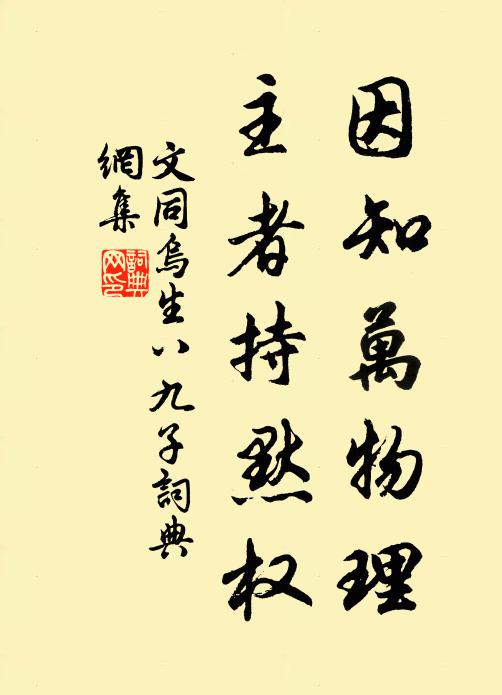 因知萬物理
主者持默权
文同烏生八九子詞典
網集
詞典
网印